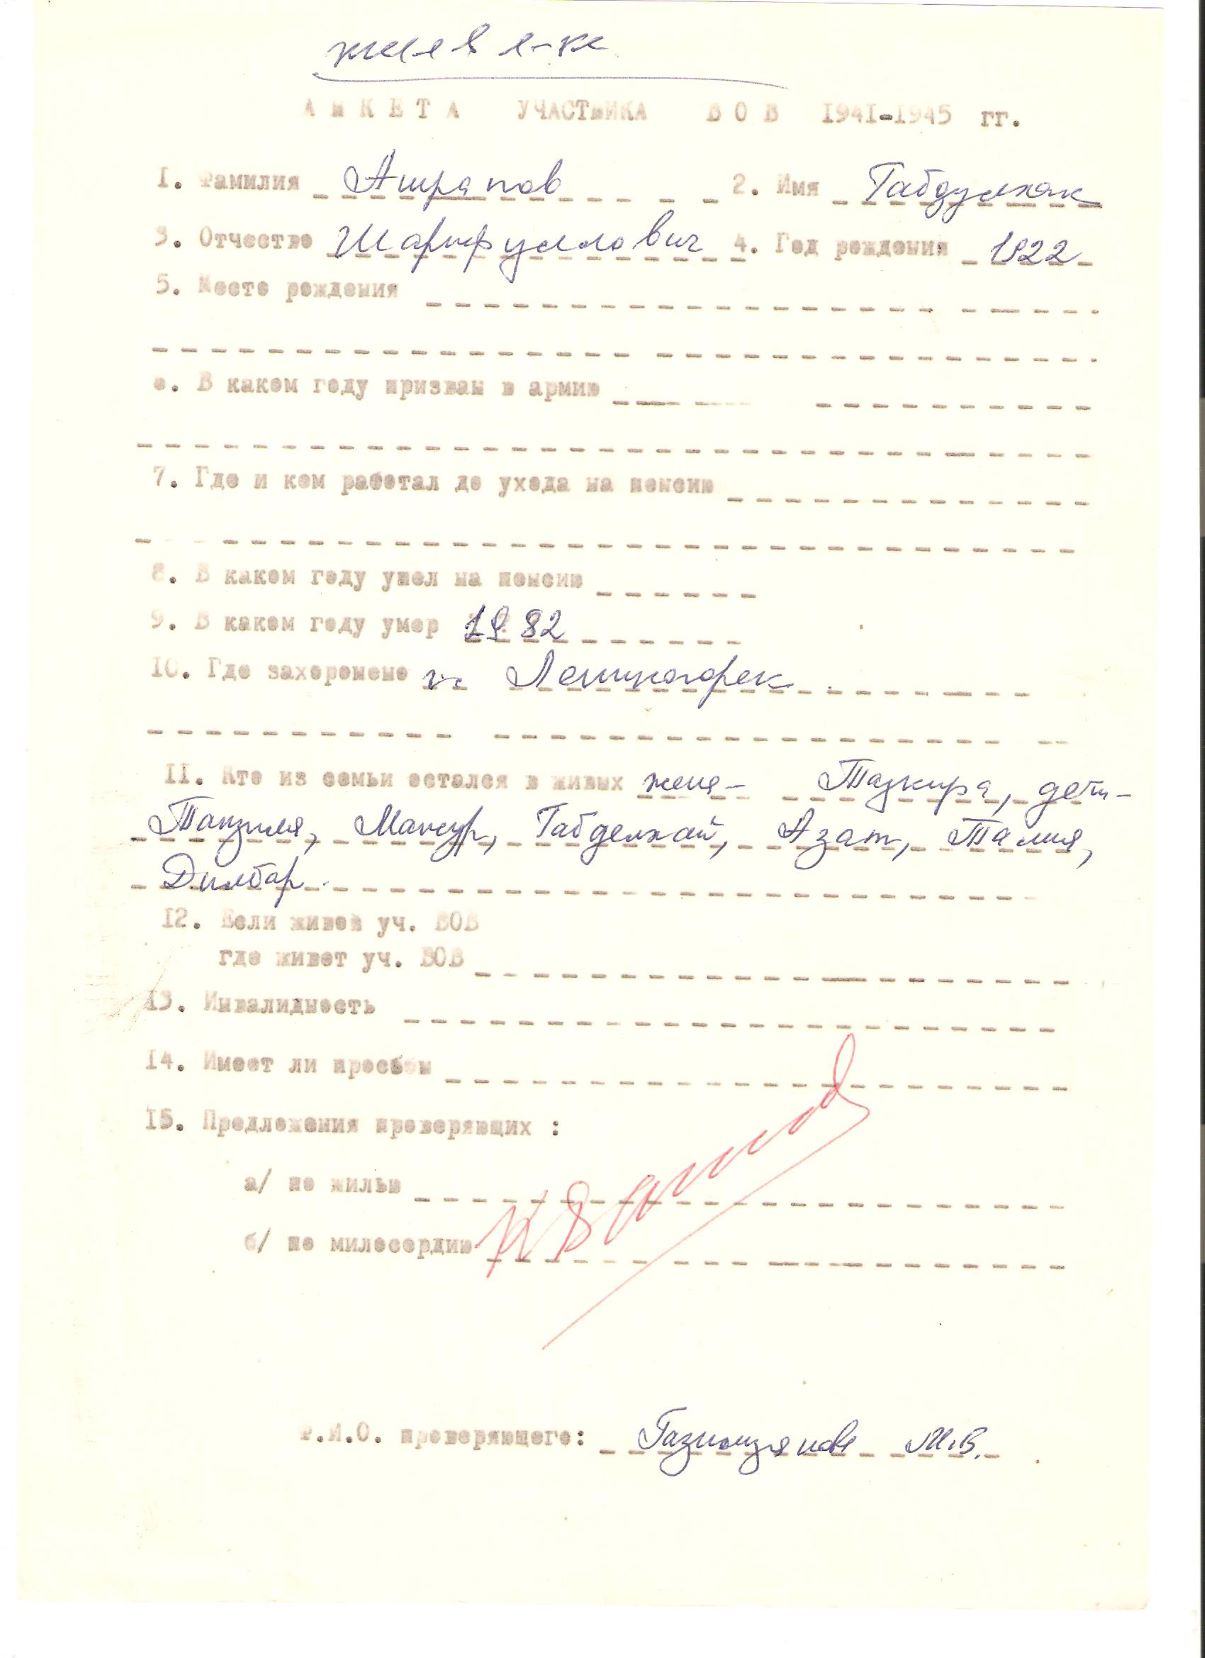 АНКЕТА УЧАСТНИКА ВОВ 1941-1945 гг.
1. Фамилия Ашрапов 2. Имя Габдулхак
3. Отчество Шарифуллович 4. Год рождения 1922
5. Место рождения
6. В каком году призван в армию
7. Где и кем работал до ухода на пенсию
8. В каком году ушел на пенсию
9. В каком году умер 1982
10. Где захоронено г. Лениногорск
11. Кто из семьи остался в живых жена - Тазкира, дети -
Танзиля, Мансур, Габделхай, Азат, Талия,
Дилбар.
12. Если живой уч. ВОВ
где живет уч. ВОВ
13. Инвалидность
14. Имеет ли просьбы
15. Предложения проверяющих :
а/ по жилью
б/ по милосердию
Ф.И.О. проверяющего: М.В.